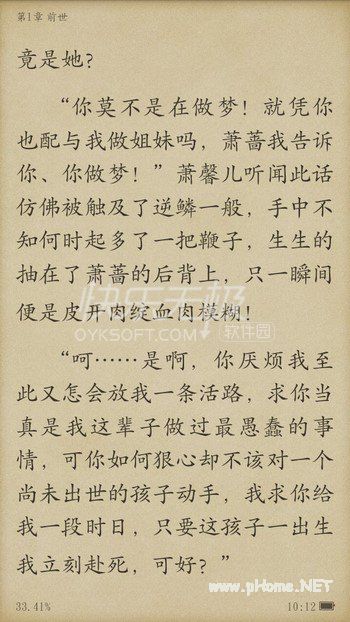 第1章 前世
竟是她？
“你莫不是在做梦！就凭你
也配与我做姐妹吗，萧蔷我告诉
你、你做梦！”萧馨儿听闻此话
仿佛被触及了逆鳞一般，手中不
知何时起多了一把鞭子，生生的
抽在了萧蔷的后背上，只一瞬间
便是皮开肉绽血肉模糊！
快乐无极
OYKSOFT.COM 软件园
“呵……是啊，你厌烦我至
此又怎会放我一条活路，求你当
真是我这辈子做过最愚蠢的事
情，可你如何狠心却不该对一个
尚未出世的孩子动手，我求你给
我一段时日，只要这孩子一出生
我立刻赴死，可好？”
www.pHome.NET
33.41% 10:12